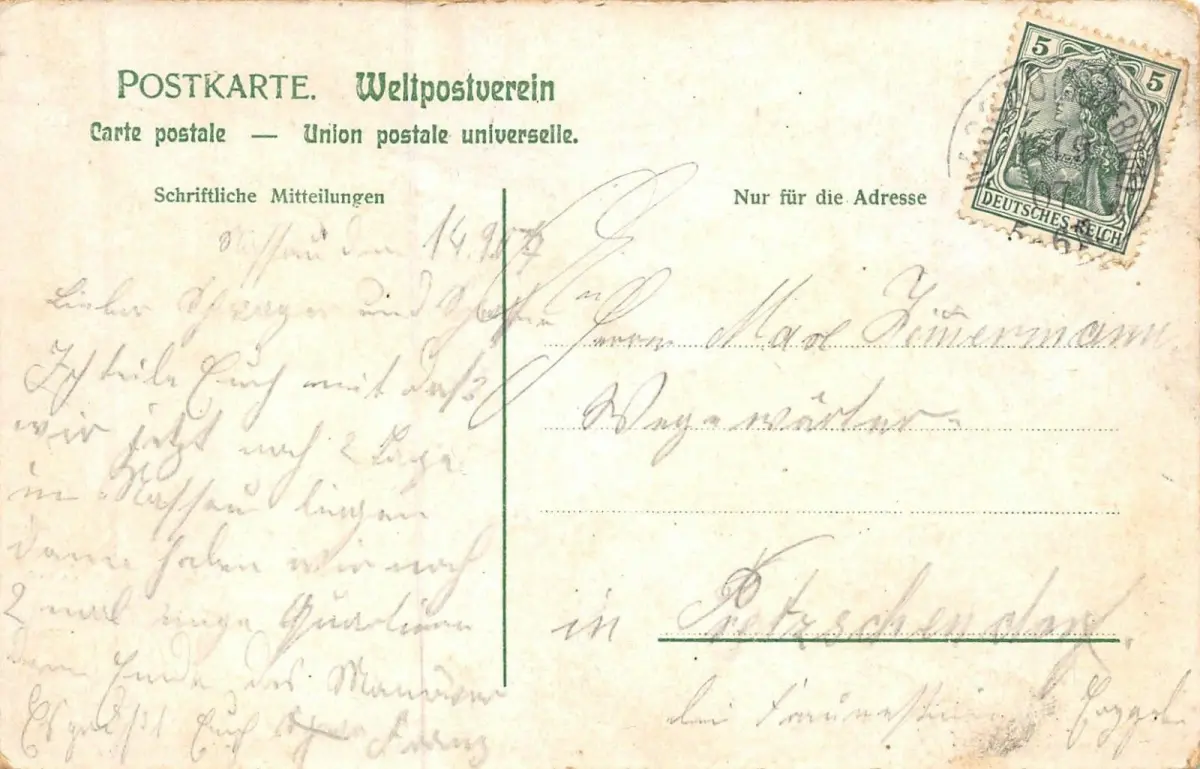 POSTKARTE. Weltpostverein
Carte postale — Union postale universelle.
Schriftliche Mitteilungen
Nur für die Adresse
5 5
DEUTSCHES REICH
07
5-6
Nassau den 14.9.07
Lieber Schwager und
Ich teile Euch mit daß
wir jetzt noch 2 Tage
in Nassau liegen
dann haben wir noch
2 mal enge Quartiere
Ende des Manöver
Es grüßt Euch Franz
Herrn Max Zimmermann
Wegewärter
in Pretzschendorf.
bei